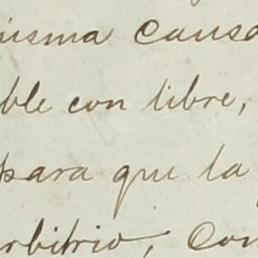 misma causa
ble con libre,
para que la
arbitrio, con